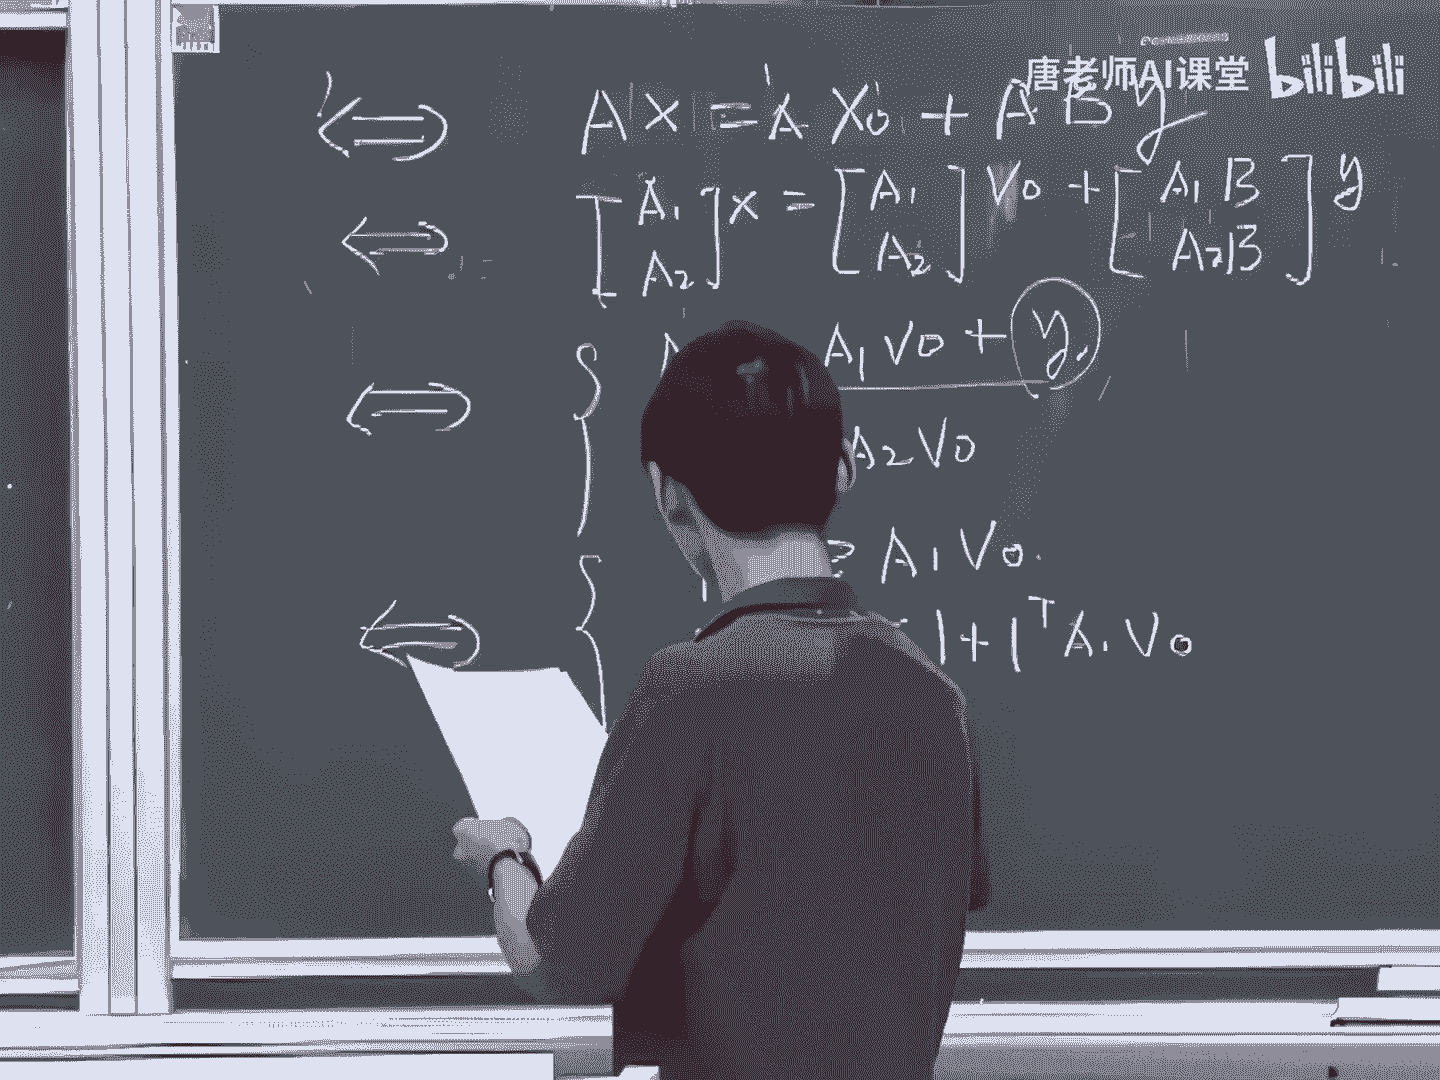 唐老师AI课堂 bilibili
⇔ A x = A X₀ + A B y
⇔ [A₁ A₂] x = [A₁ A₂] V₀ + [A₁B A₂B] y
⇔ { A₁V₀ + y.
A₂V₀
⇔ { ≥ A₁V₀.
1 + 1ᵀA₁V₀